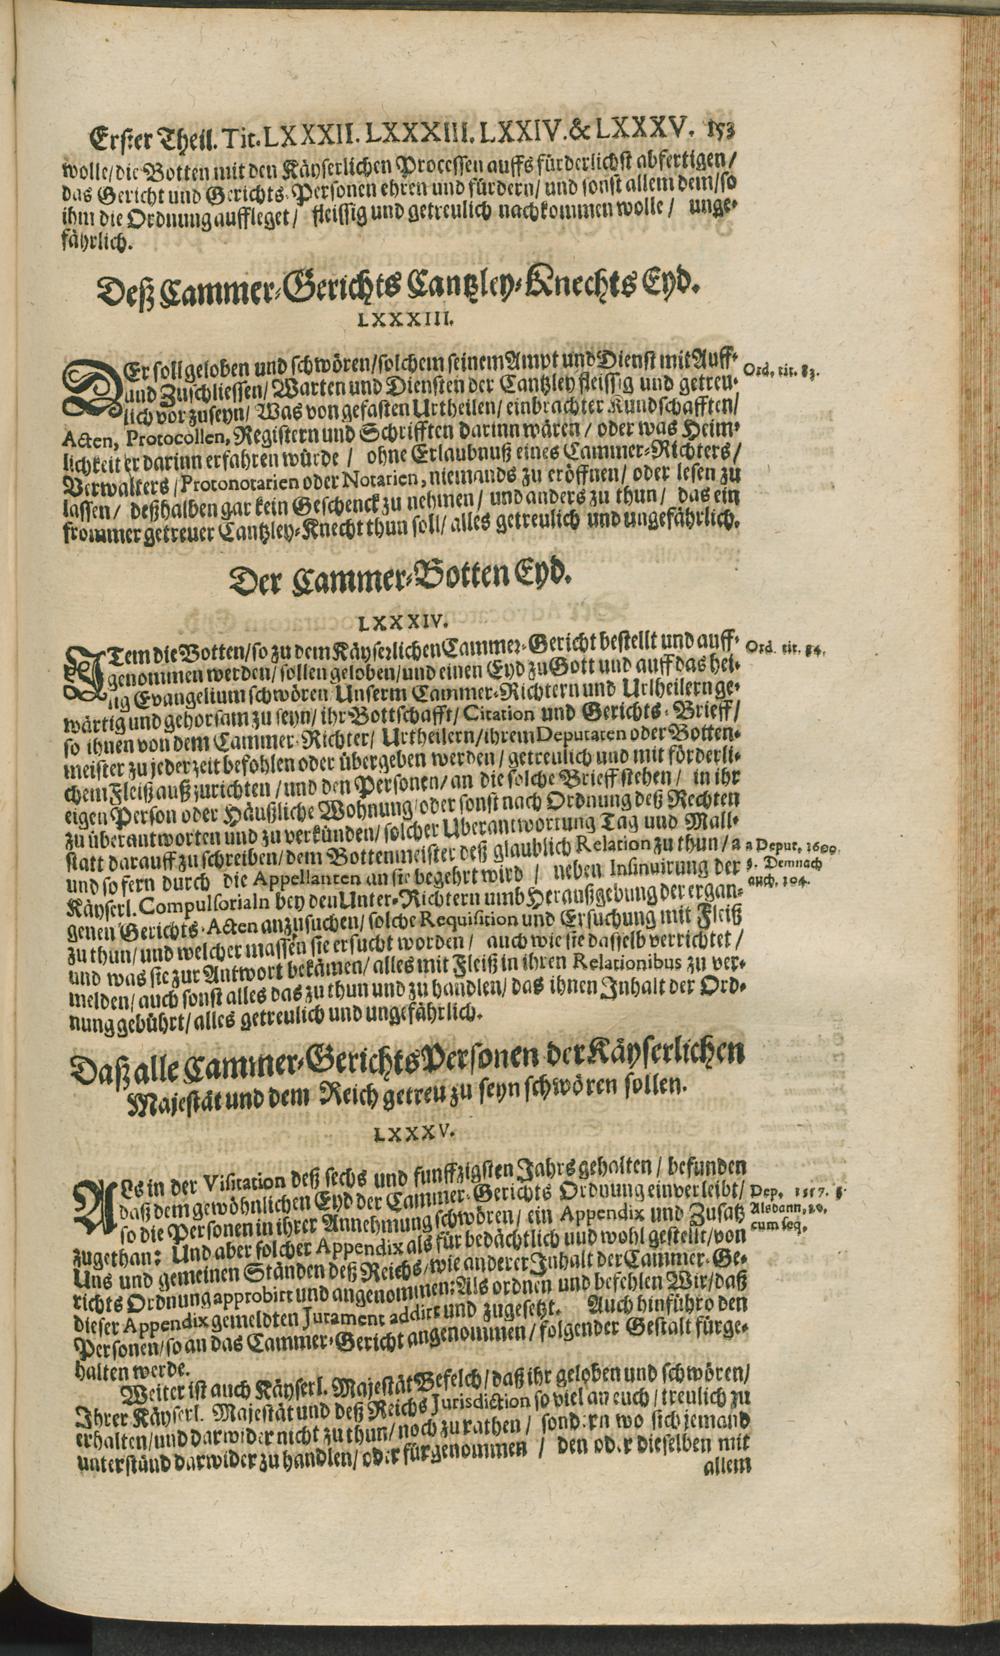 Erster Theil. Tit. LXXXII. LXXXIII. LXXIV. & LXXXV. 153
wolle/ die Botten mit den Käyserlichen Processen auffs fürderlichst abfertigen/
das Gericht und Gerichts-Personen ehren und fürdern/ und sonst allem dem/ so
ihm die Ordnung auffleget/ fleissig und getreulich nachkommen wolle/ unge-
fährlich.
Deß Cammer-Gerichts Cantzley-Knechts Eyd.
LXXXIII.
DEr soll geloben und schwören/ solchem seinem Ampt und Dienst mit Auff-
und Zuschliessen/ Warten und Diensten der Cantzley fleissig und getreu-
lich vor zuseyn/ Was von gefasten Urtheilen/ einbrachter Kundschafften/
Acten, Protocollen, Registern und Schrifften darinn wären/ oder was Heim-
lichkeit er darinn erfahren würde/ ohne Erlaubnuß eines Cammer-Richters/
Verwalters/ Protonotarien oder Notarien, niemands zu eröffnen/ oder lesen zu
lassen/ deßhalben gar kein Geschenck zu nehmen/ und anders zu thun/ das ein
frommer getreuer Cantzley-Knecht thun soll/ alles getreulich und ungefährlich.
Ord. tit. 83.
Der Cammer-Botten Eyd.
LXXXIV.
ITem die Botten/ so zu dem Käyserlichen Cammer-Gericht bestellt und auff-
genommen werden/ sollen geloben/ und einen Eyd zu Gott und auff das hei-
lig Evangelium schwören Unserm Cammer-Richtern und Urlheilern ge-
wärtig und gehorsam zu seyn/ ihr Bottschafft/ Citation und Gerichts-Brieff/
so ihnen von dem Cammer-Richter/ Urtheilern/ ihrem Deputaten oder Botten-
meister zu jeder zeit befohlen oder übergeben werden/ getreulich und mit förderli-
chem Fleiß außzurichten/ und den Personen/ an die solche Brieff stehen/ in ihr
eigen Person oder Häußliche Wohnung/ oder sonst nach Ordnung deß Rechten
zu überantworten und zu verkünden/ solcher Uberantwortung Tag und Mall-
statt darauff zu schreiben/ dem Bottenmeister deß glaublich Relation zu thun/ a
und so fern durch die Appellanten an sie begehrt wird/ neben Insinuirung der
Käyserl. Compulsorialn bey den Unter-Richtern umb Heraußgebung der ergan-
genen Gerichts-Acten anzusuchen/ solche Requisition und Ersuchung mit Fleiß
zu thun/ und welcher massen sie ersucht worden/ auch wie sie dasselb verrichtet/
und was sie zur Antwort bekämen/ alles mit Fleiß in ihren Relationibus zu ver-
melden/ auch sonst alles das zu thun und zu handlen/ das ihnen Inhalt der Ord-
nung gebührt/ alles getreulich und ungefährlich.
Ord. tit. 84.
a Deput. 1600.
§. Demnach
auch. 104.
Daß alle Cammer-Gerichts Personen der Käyserlichen
Majestät und dem Reich getreu zu seyn schwören sollen.
LXXXV.
ALs in der Visitation deß sechs und funffzigsten Jahrs gehalten/ befunden
daß dem gewöhnlichen Eyd der Cammer-Gerichts Ordnung einverleibt/
so die Personen in ihrer Annehmung schwören/ ein Appendix und Zusatz
zugethan: Und aber solcher Appendix als für bedächtlich und wohl gestellt/ von
Uns und gemeinen Ständen deß Reichs/ wie anderer Inhalt der Cammer-Ge-
richts Ordnung approbirt und angenommen: Als ordnen und befehlen Wir/ daß
dieser Appendix gemeldten Jurament addirt und zugesetzt. Auch hinführo den
Personen/ so an das Cammer-Gericht angenommen/ folgender Gestalt fürge-
halten werde.
Dep. 1557. §.
Alsdann, 20.
cum seq.
Weiter ist auch Käyserl. Majestät Befelch/ daß ihr geloben und schwören/
Ihrer Käyserl. Majestät und deß Reichs Jurisdiction so viel an euch/ treulich zu
erhalten/ und darwider nicht zu thun/ noch zu rathen/ sondern wo sich jemand
unterstünd darwider zu handlen/ oder fürgenommen/ den oder dieselben mit
allem